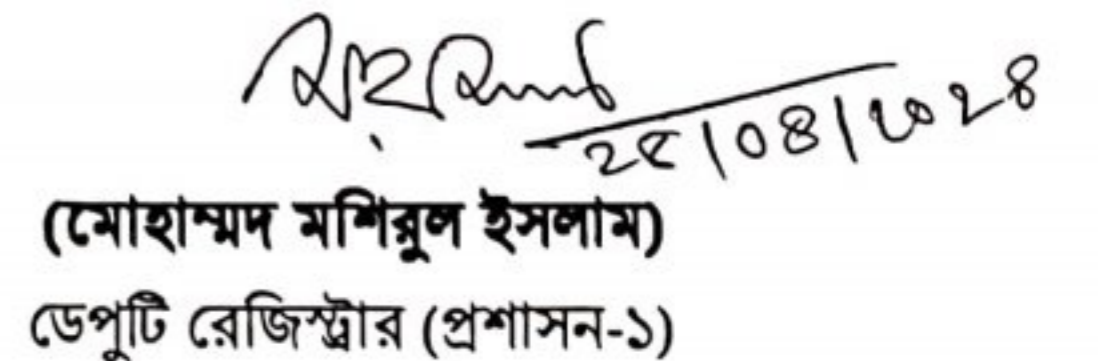 ২৫/০৪/২০২৪
(মোহাম্মদ মশিরুল ইসলাম)
ডেপুটি রেজিস্ট্রার (প্রশাসন-১)